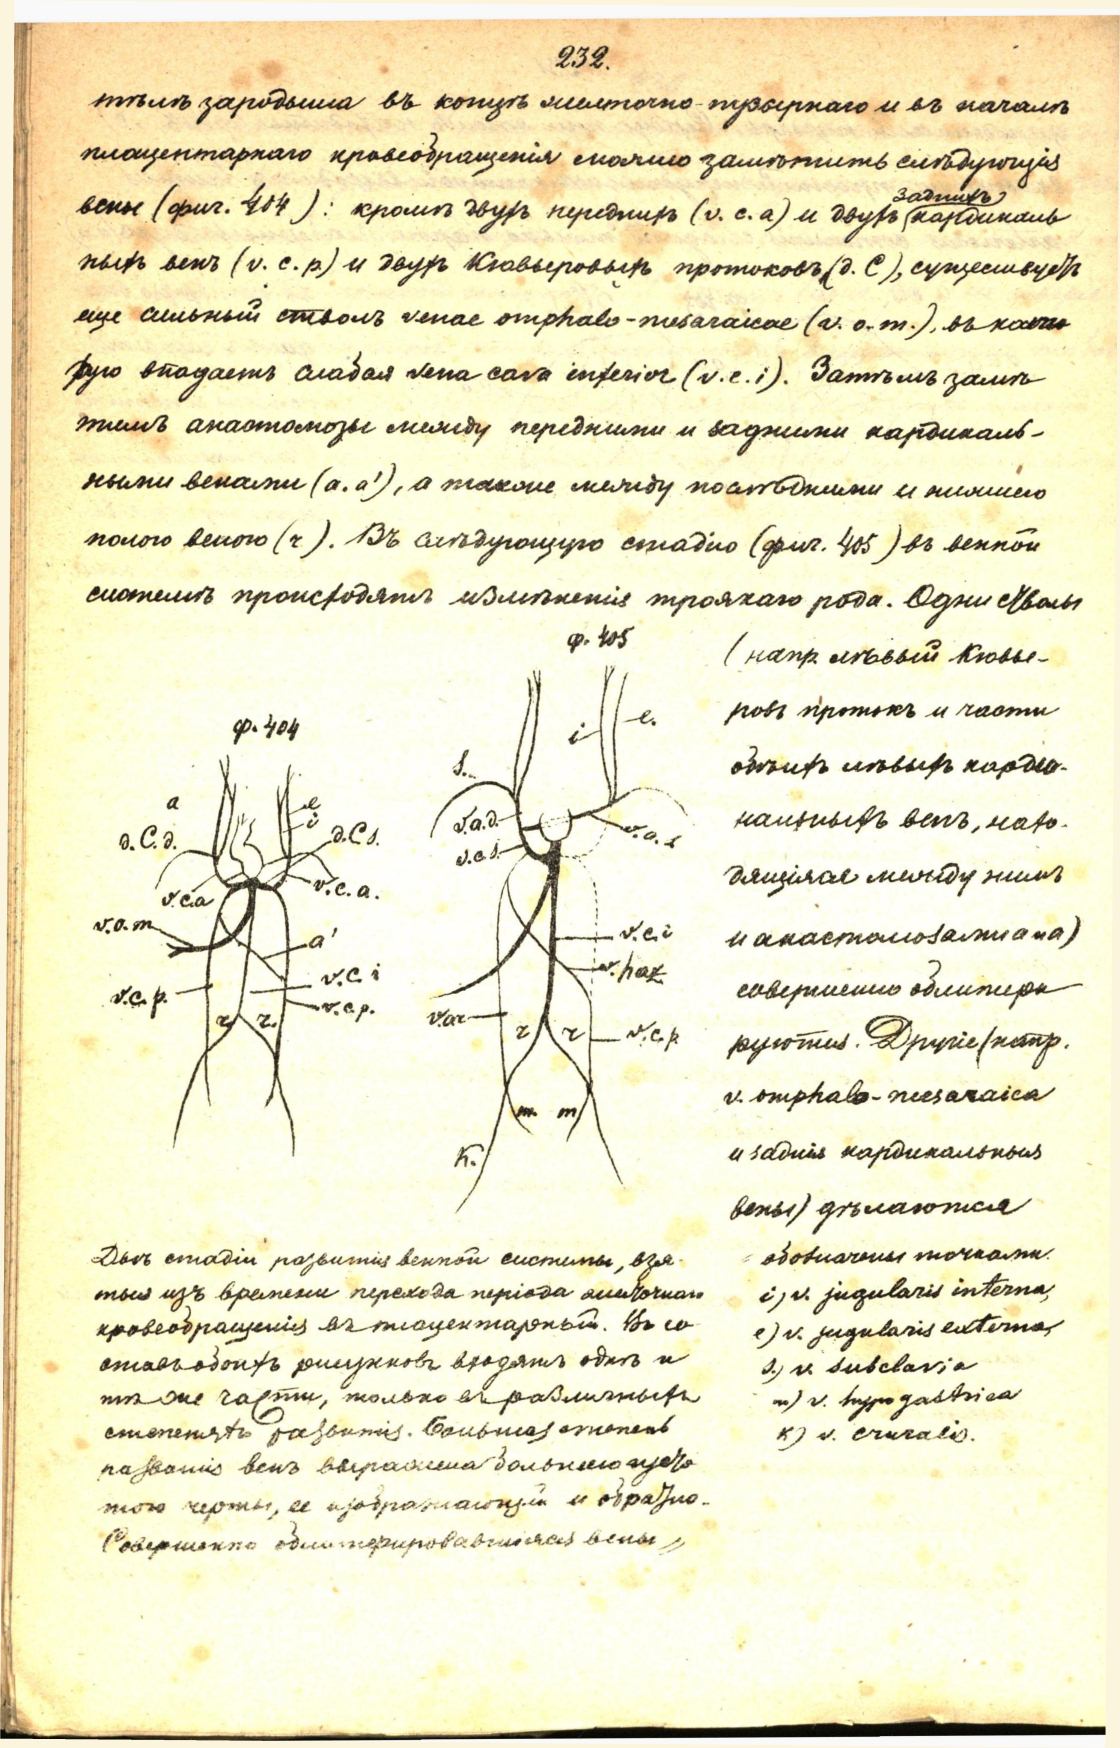 232.
тѣлѣ зародыша въ концѣ желточно-пузырнаго и въ началѣ
плацентарнаго кровеобращенія можно замѣтить слѣдующія
вены (фиг. 404): кромѣ двухъ переднихъ (v. c. a) и двухъ заднихъ кардиналь
ныхъ венъ (v. c. p.) и двухъ Кювьеровыхъ протоковъ (d. C), существуетъ
еще сильный стволъ venae omphalo-mesaraicae (v. o. m.), въ кото
рую впадаетъ слабая vena cava inferior (v. c. i). Затѣмъ замѣ
тимъ анастомозы между передними и задними кардиналь-
ными венами (a. a'), а также между послѣдними и нижнею
полою веною (r). Въ слѣдующую стадію (фиг. 405) въ венной
системѣ происходятъ измѣненія троякаго рода. Одни стволы
(напр. лѣвый Кювье-
ровъ протокъ и части
обѣихъ лѣвыхъ карди-
нальныхъ венъ, нахо-
дящіяся между нимъ
и анастомозами a и a)
совершенно облитери
руются. Другіе (напр.
v. omphalo-mesaraica
и заднія кардинальныя
вены) дѣлаются
ф. 404
a
d.C.d.
e
i
d.C s.
v.c.a
v.c.a.
v.o.m
a'
v.c.i
v.c.p.
v.c.p.
r
r.
ф. 405
i
e.
s.
v.a.d.
v.a.s
v.c.s.
v.c.i
v.haz
v.c.p.
r
r
m
m
K.
Двѣ стадіи развитія венной системы, взя-
тыя изъ времени перехода періода желточнаго
кровеобращенія въ плацентарный. Въ со
ставъ обоихъ рисунковъ входятъ однѣ и
тѣ же части, только въ различныхъ
степеняхъ развитія. Большая степень
развитія венъ выражена большею густо
тою черты, ее изображающей и обратно.
Совершенно облитерировавшіяся вены
обозначены точками.
i) v. jugularis interna,
e) v. jugularis externa,
s.) v. subclavia
m) v. hypogastrica
K) v. cruralis.